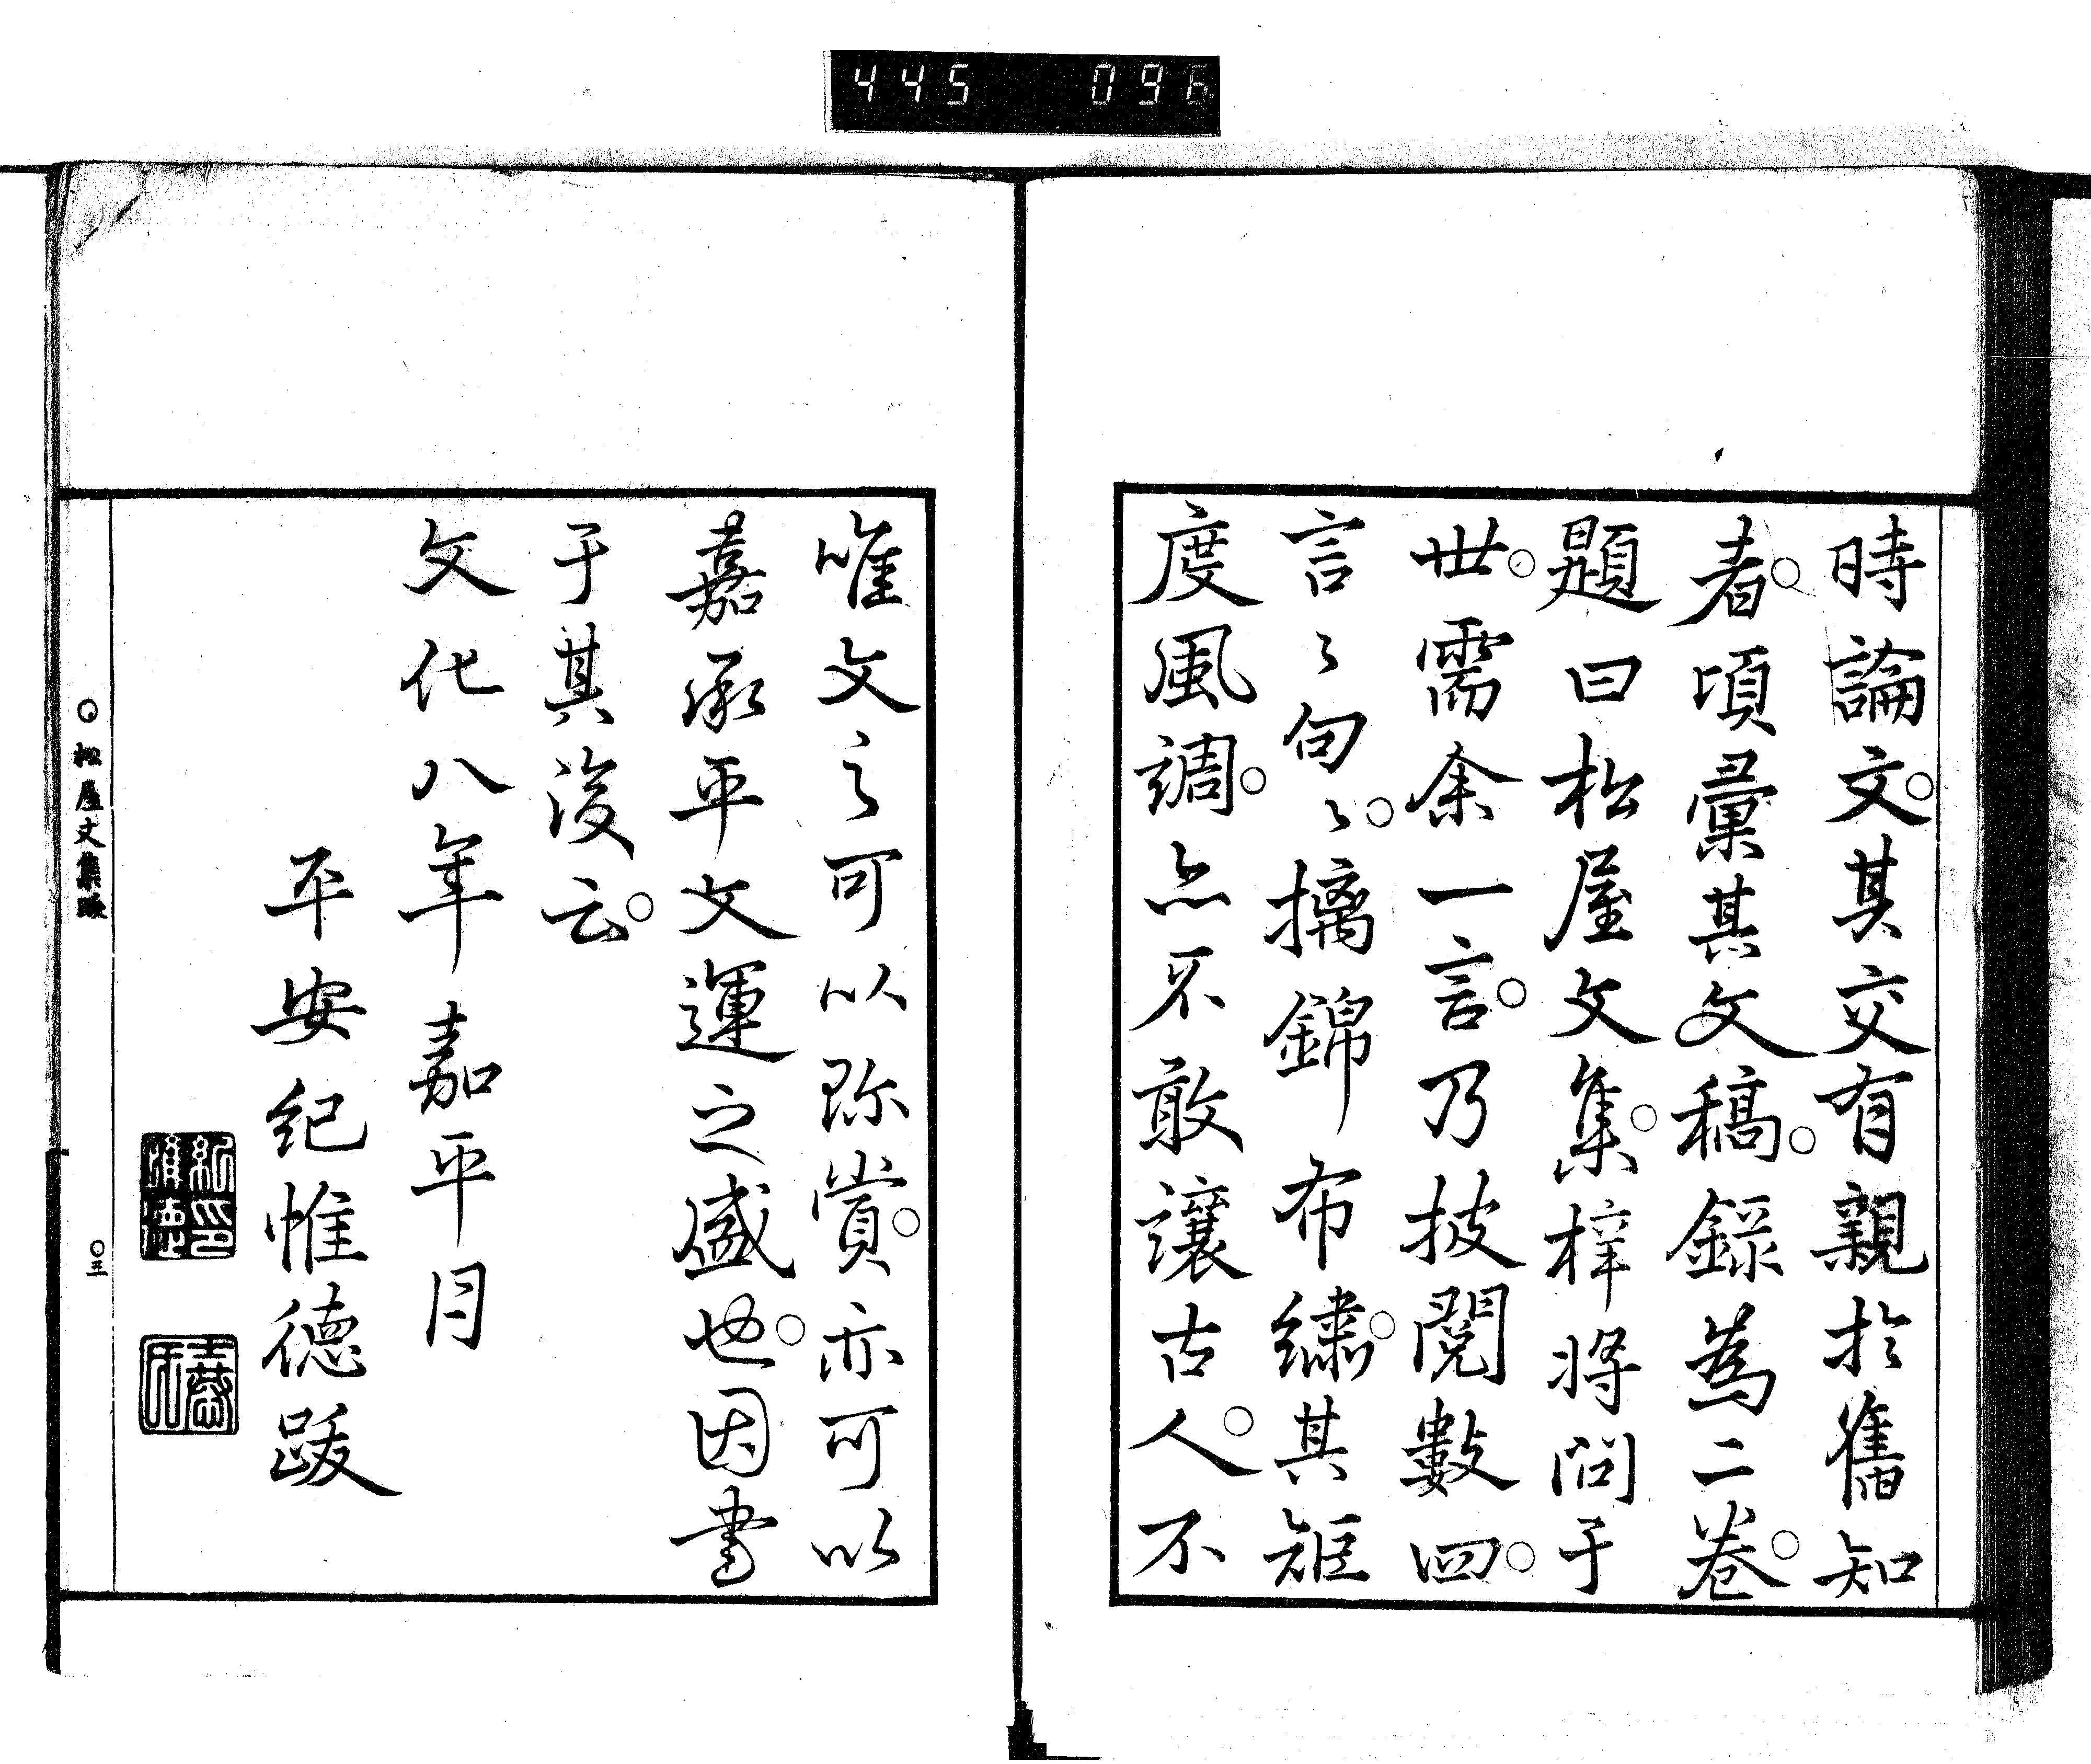 445 096
時論文。其交有親於舊知
者。頃彙其文稿。錄為二卷。
題曰松屋文集。梓将問于
世。需余一言。乃披閱數四。
言〻句〻。摛錦布繡。其矩
度風調。亦不敢讓古人。不
唯文之可以弥賞。亦可以
嘉承平文運之盛也。因書
于其後云。
文化八年嘉平月
平安紀惟德跋
松屋文集跋
〇三